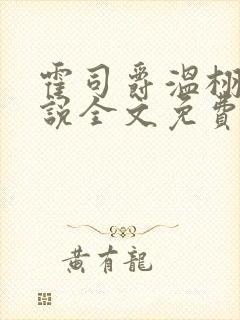 霍司爵溫栩
說全文免費
黃有龍